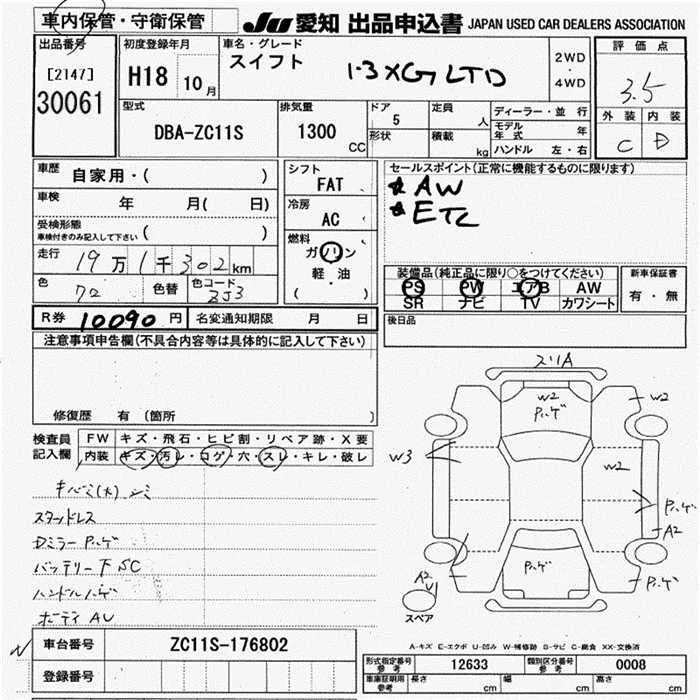 車内保管・守衛保管
JU 愛知 出品申込書 JAPAN USED CAR DEALERS ASSOCIATION
出品番号
[2147]
30061
初度登録年月
H18 10月
車名・グレード
スイフト 1.3 XG LTD
2WD
・
4WD
評価点
3.5
外装 内装
C D
型式
DBA-ZC11S
排気量
1300 CC
ドア 5
形状
定員 人
積載 kg
ディーラー・並行
モデル年式 年
ハンドル 左・右
車歴 自家用・( )
車検 年 月( 日)
受検形態
車検付きのみ記入して下さい ( )
走行 19万1千302km
色 色替 色コード ZJ3
シフト
FAT
冷房
AC
燃料
ガソリン
軽・油
( )
セールスポイント(正常に機能するものに限ります)
★AW
★ETC
装備品(純正品に限り○をつけてください)
PS PW エアB AW
SR ナビ TV カワシート
新車保証書
有・無
R券 10090円 名変通知期限 月 日
後日品
注意事項申告欄(不具合内容等は具体的に記入して下さい)
修復歴 有 (箇所 )
検査員記入欄
FW キズ・飛石・ヒビ割・リペア跡・X要
内装 キズ・汚レ・コゲ・穴・スレ・キレ・破レ
スタッドレス
Dミラー Pハゲ
バッテリー下 SC
ハンドルハゲ
ボーディ AU
スリA
W2
Pハゲ
W2
W3
W2
Pハゲ
A2
A2
U
Pハゲ
Pハゲ
スペア
A-キズ E-エクボ U-凹み W-補修跡 S-サビ C-腐食 XX-交換済
車台番号 ZC11S-176802
登録番号
型式指定番号参考 12633 類別区分番号参考 0008
車庫証明用参考 長さ cm 幅 cm 高さ cm